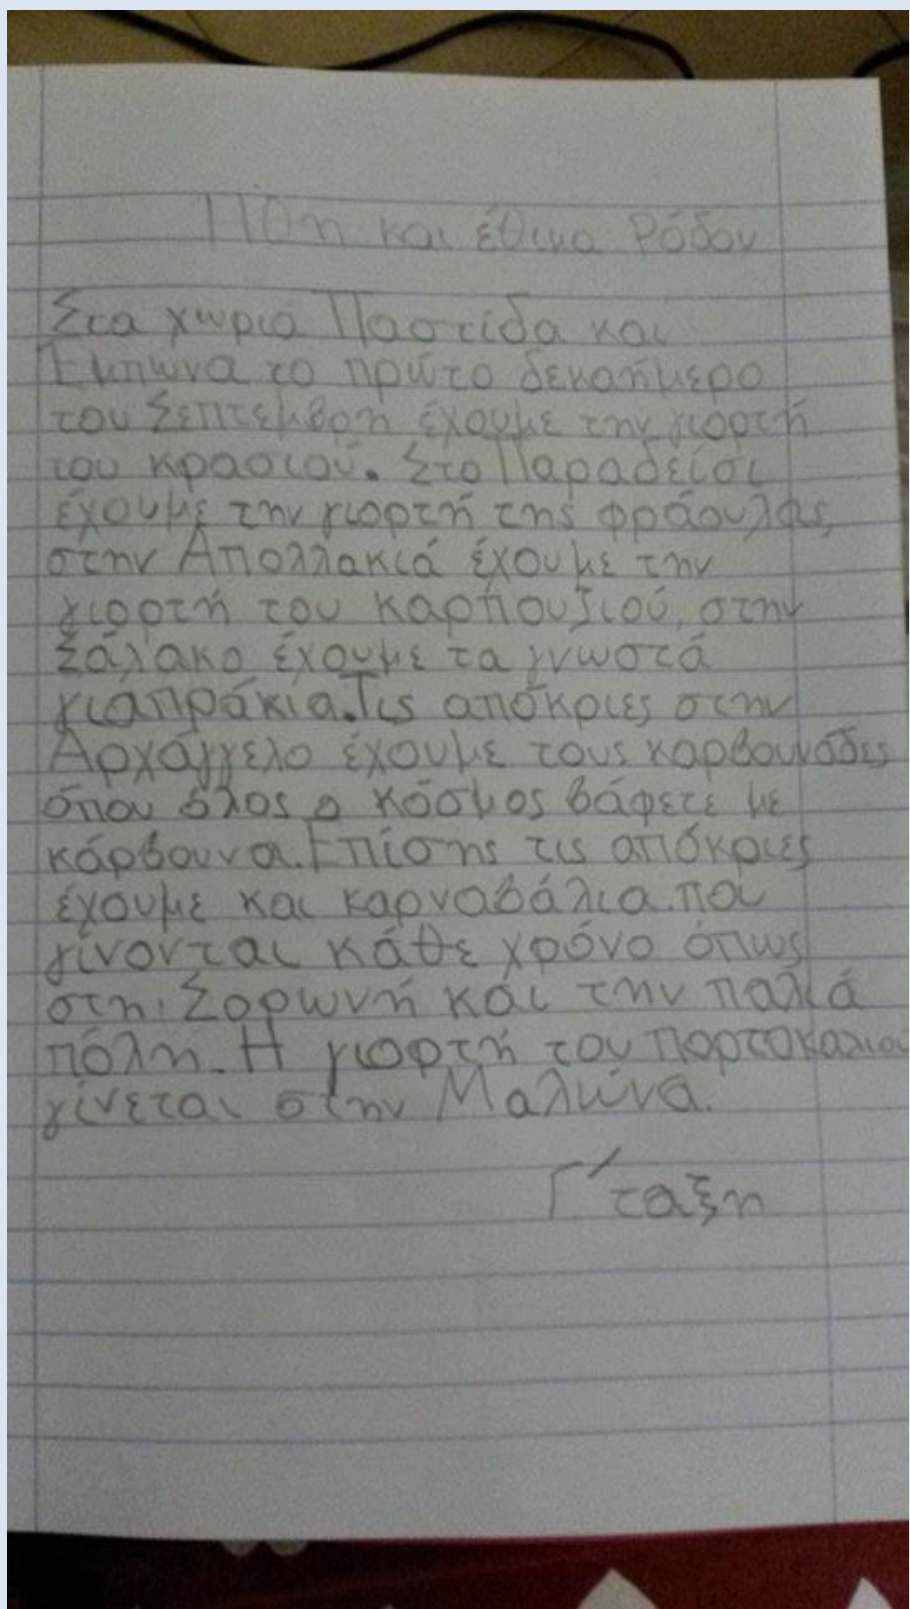 Ήθη και έθιμα Ρόδου
Στα χωριά Παστίδα και
Έμπωνα το πρώτο δεκαήμερο
του Σεπτεμβρη έχουμε την γιορτή
του κρασιού. Στο Παραδείσι
έχουμε την γιορτή της φράουλας,
στην Απολλακιά έχουμε την
γιορτή του καρπουζιού, στην
Σάλακο έχουμε τα γνωστά
γιαπράκια. Τις απόκριες στην
Αρχάγγελο έχουμε τους καρβουνάδες
όπου όλος ο κόσμος βάφετε με
κάρβουνα. Επίσης τις απόκριες
έχουμε και καρναβάλια που
γίνονται κάθε χρόνο όπως
στη Σορωνή και την παλιά
πόλη. Η γιορτή του πορτοκαλιού
γίνεται στην Μαλώνα.
Γ' ταξη